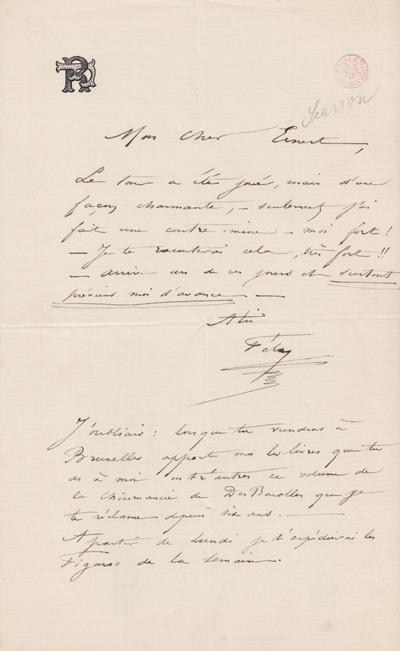 Scarron
Mon Cher Ernest,
Le tour a été joué, mais d'une
façon charmante, – seulement j'ai
fait une contre mine – moi fort!
– Je te raconterai cela, très fort!!
– arrive un de ces jours et surtout
préviens moi d'avance –
A toi
Fély
J'oubliais: lorsque tu viendras à
Bruxelles apporte moi les livres que tu
as à moi entr'autres ce volume de
la Chiromancie de Des Barolles que je
te réclame depuis six ans. –
A partir de Lundi je t'expédierai les
Figaros de la semaine.